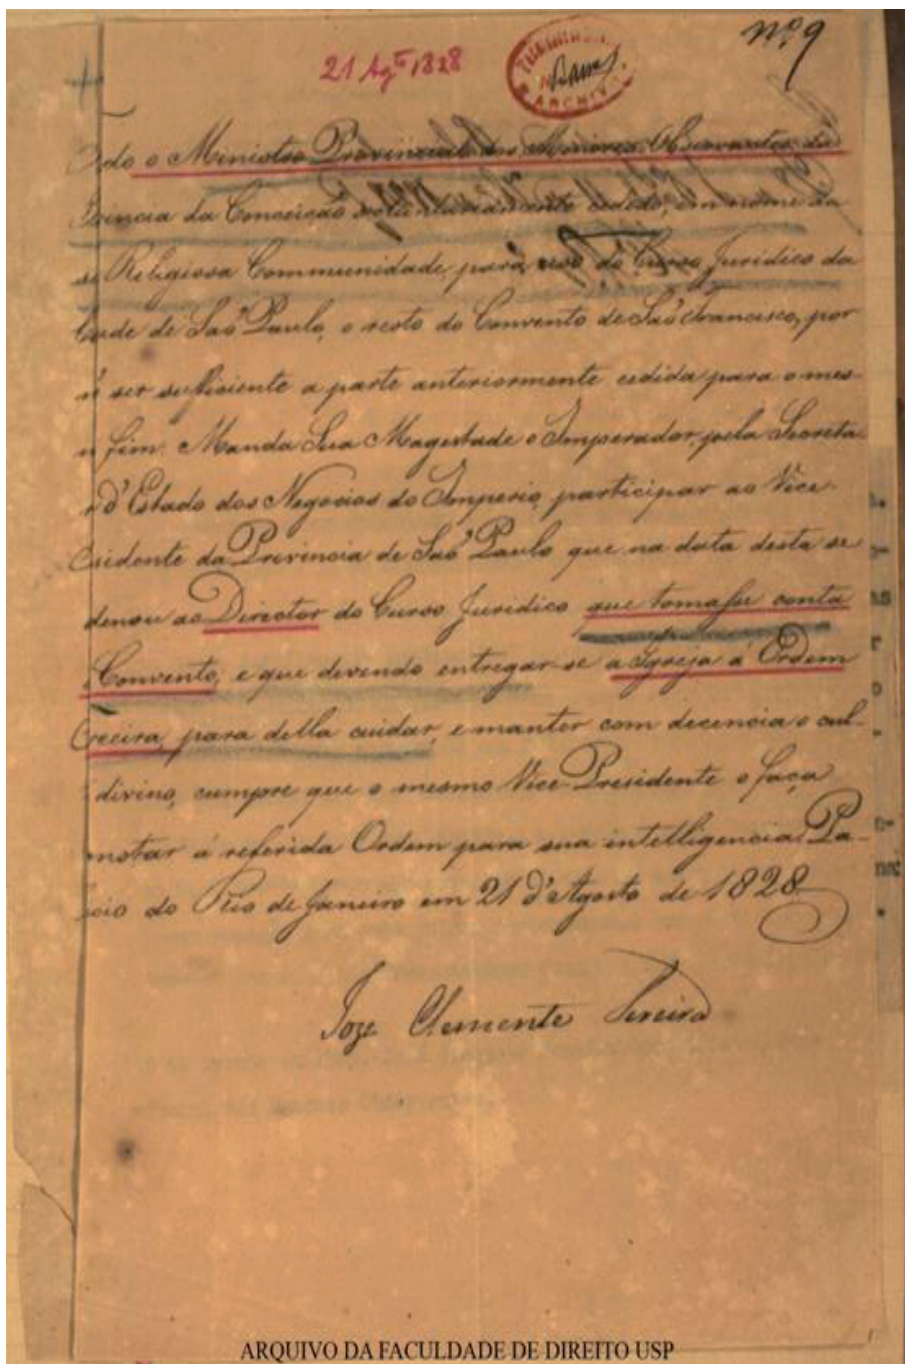 nº 9
21 Agto 1828
ARCHIVO
do o Ministro Provincial dos Menores Observantes da
vincia da Conceição voluntariamente cedido, em nome da
Religiosa Communidade, para uso do Curso Juridico da
dade de São Paulo, o resto do Convento de São Francisco, por
ñ ser sufficiente a parte anteriormente cedida para o mes-
fim: Manda Sua Magestade o Imperador, pela Secreta
d'Estado dos Negocios do Imperio, participar ao Vice-
sidente da Provincia de São Paulo que na data desta se
denou ao Director do Curso Juridico que tomasse conta
Convento, e que devendo entregar-se a Igreja á Ordem
rceira, para della cuidar, e manter com decencia o cul-
divino, cumpre que o mesmo Vice Presidente o faça
notar á referida Ordem para sua intelligencia. Pa-
cio do Rio de Janeiro em 21 d'Agosto de 1828
Joze Clemente Pereira
ARQUIVO DA FACULDADE DE DIREITO USP